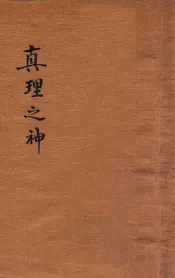 真理之神